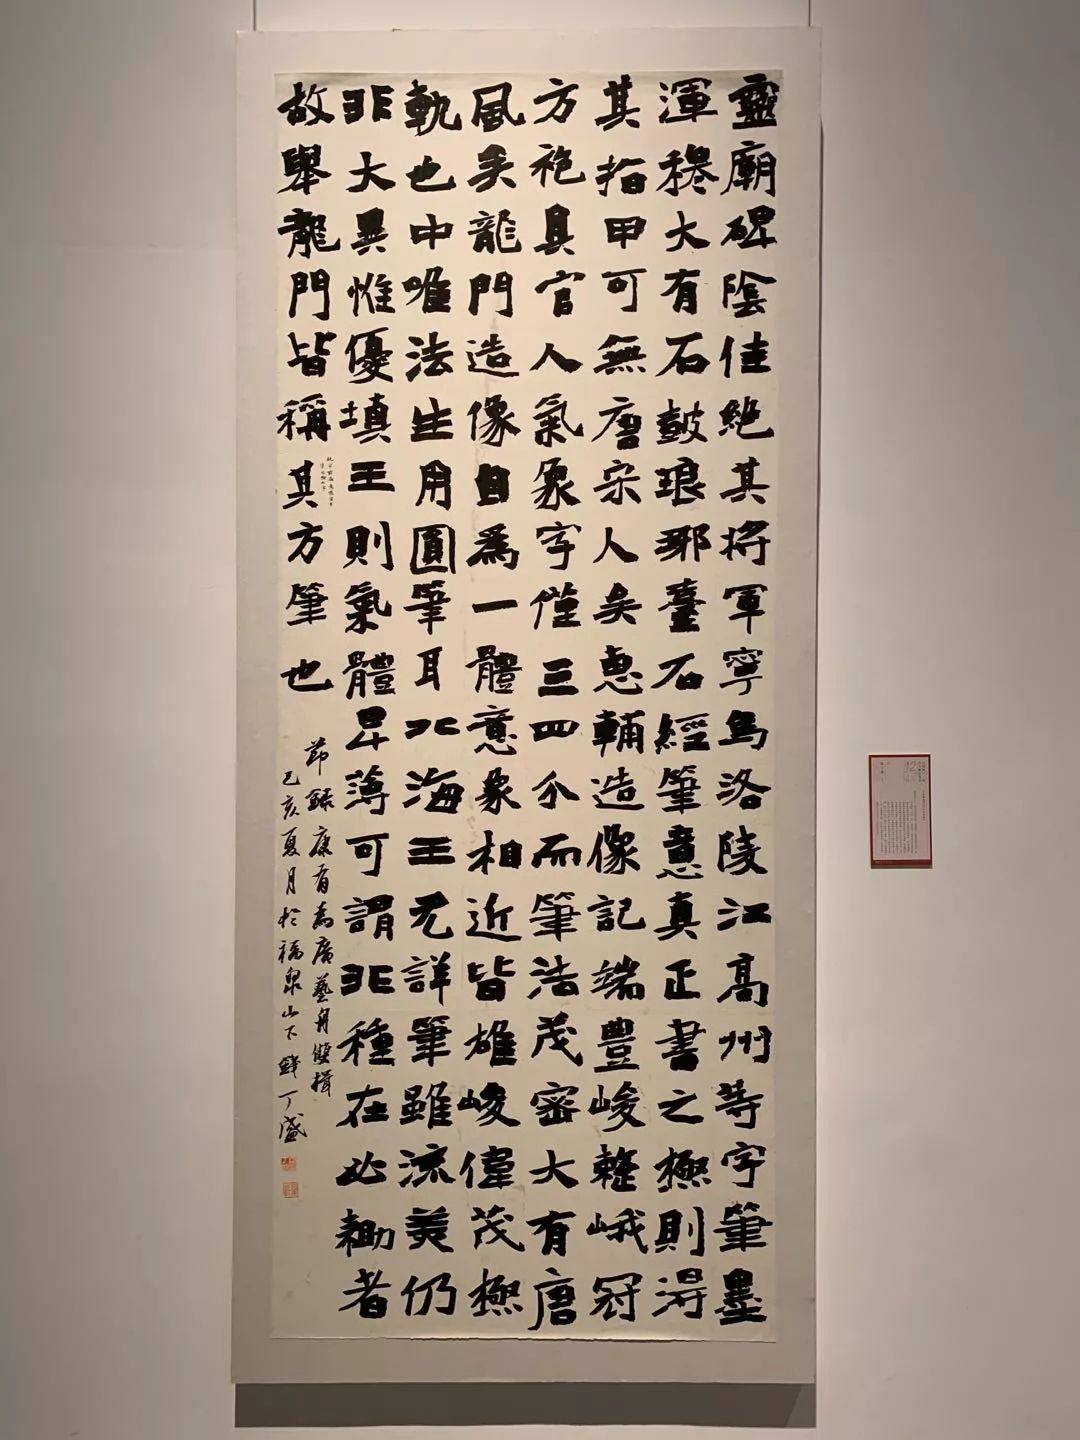 靈廟碑陰佳絕其將軍寧烏洛陵江高州等字筆墨
渾穆大有石鼓琅邪臺石經筆意真正書之極則得
其指甲可無唐宋人矣惠輔造像記端豐峻整峨冠
方袍具官人氣象字僅三四分而筆法茂密大有唐
風矣龍門造像自為一體意象相近皆雄峻偉茂極
軌也中唯法生用圓筆耳北海王元詳筆雖流美仍
非大異惟優填王則氣體昇薄可謂非種在必鋤者
故舉龍門皆稱其方筆也
節錄康有為廣藝舟雙楫
己亥夏月於福泉山下錢丁盛